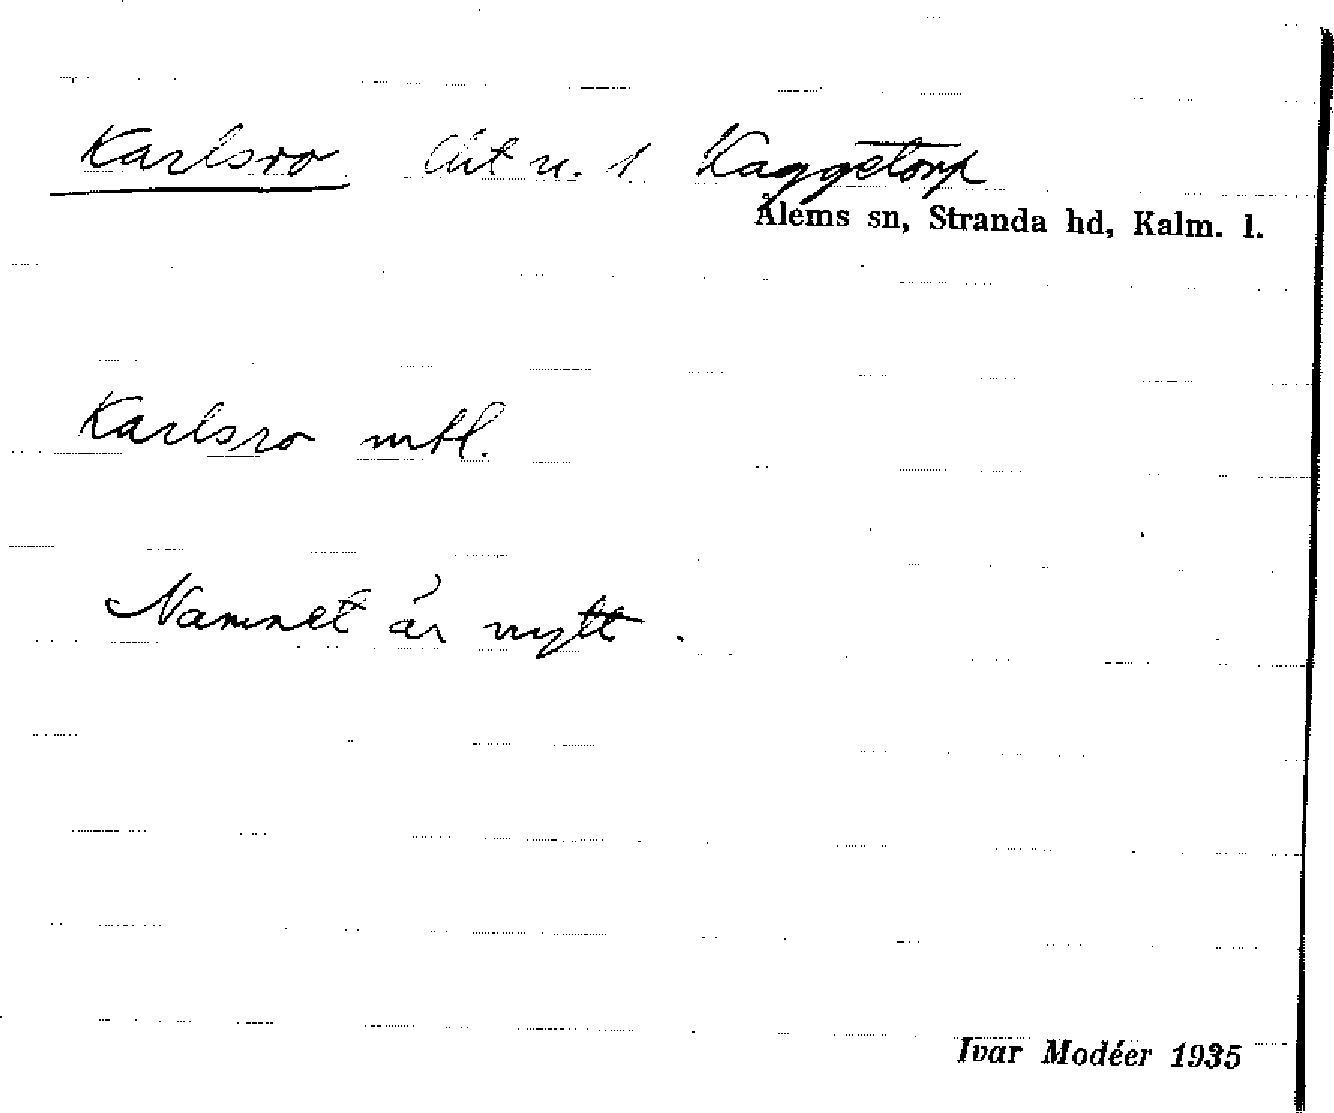 Karlsro lht u. 1 Kaggetorp
Ålems sn, Stranda hd, Kalm. l.
Karlsro mtl.
Namnet är nytt.
Ivar Modéer 1935